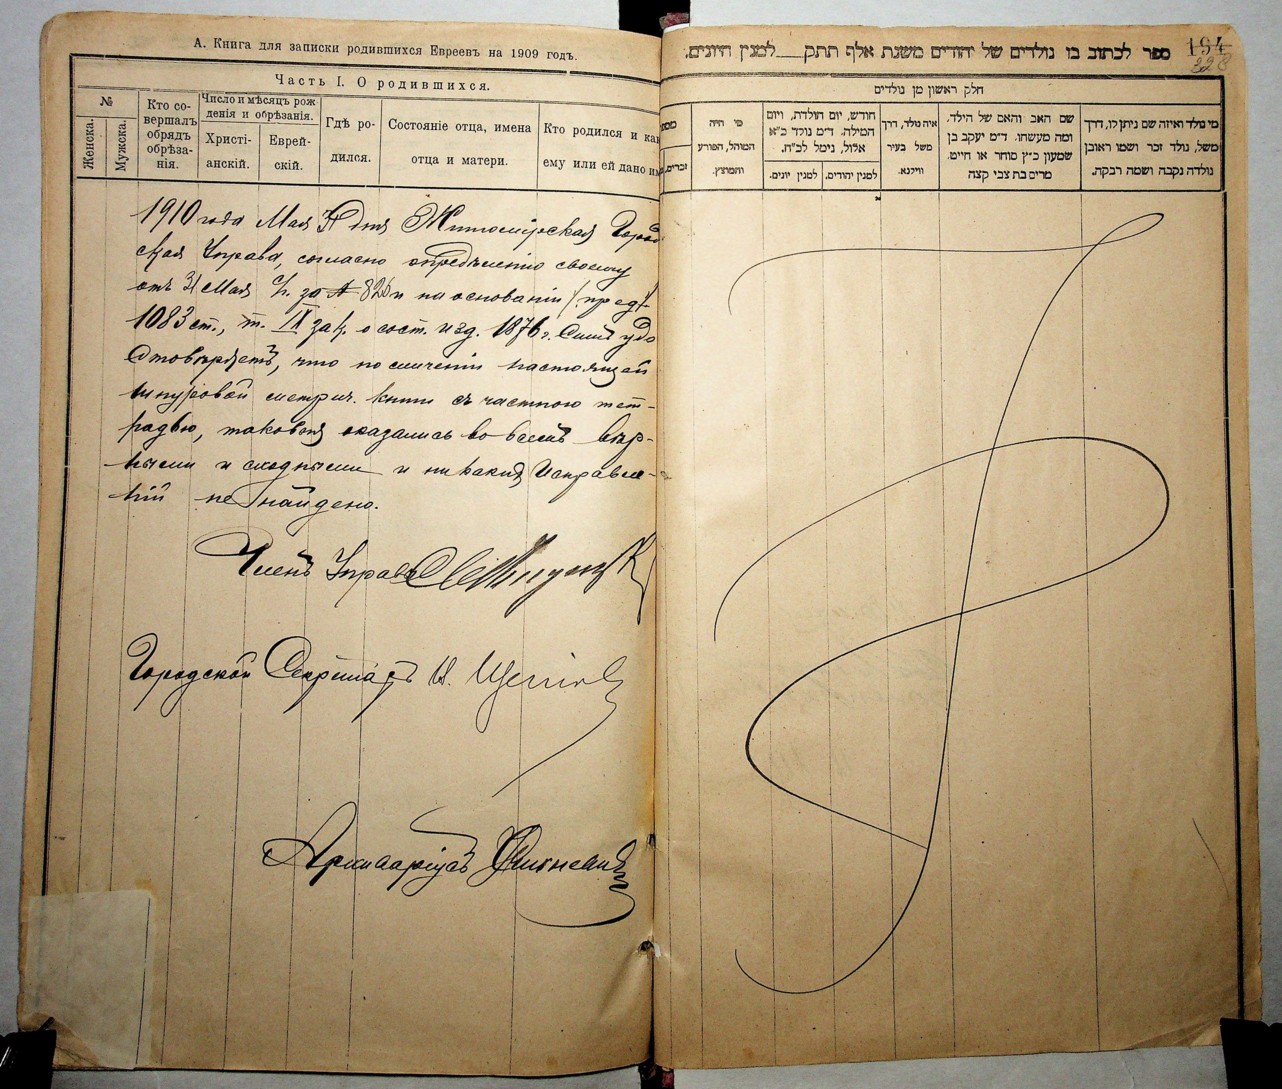 А. Книга для записки родившихся Евреевъ на 1909 годъ.
Часть I. О родившихся.
№
Женска.
Мужска.
Кто со-
вершалъ
обрядъ
обрѣза-
нія.
Число и мѣсяцъ рож
денія и обрѣзанія.
Христі-
анскій.
Еврей-
скій.
Гдѣ ро-
дился.
Состояніе отца, имена
отца и матери.
Кто родился и как
ему или ей дано им
1910 года Мая 31 дня Житомірская Город
ская Управа, согласно опредѣленію своему
отъ 31 Мая с/г. за № 826 и на основаніи
1083 ст., т. IX зак. о сост. изд. 1876 г. Симъ удо
стовѣряетъ, что по сличеніи настоящей
шнуровой метрич. книги съ частною тет-
радью, таковыя оказались во всемъ вѣр-
ными и сходными и никакихъ исправле-
ній не найдено.
Членъ Управы
Городской Секретарь
Архиваріусъ
ספר לכתוב בו נולדים של יהודים משנת אלף תתק___למנין היונים.
194
228
חלק ראשון מן נולדים
מי נולד ואיזה שם ניתן לו, דרך
משל, נולד זכר ושמו ראובן
נולדה נקבה ושמה רבקה.
שם האב והאם של הילד,
ומה מעשהו. ד״מ יעקב בן
שמעון כ״ץ סוחר או חייט.
מרים בת צבי קצה
איה נולד, דרך
משל בעיר
ווילנא.
חודש, יום הולדת, ויום
המילה. ד״מ נולד כ״א
אלול, נימל לכ״ח.
למנין יהודים.
למנין יונים.
מי היה
המוהל, הפורע
והמוצץ.
מספ
זכרים.